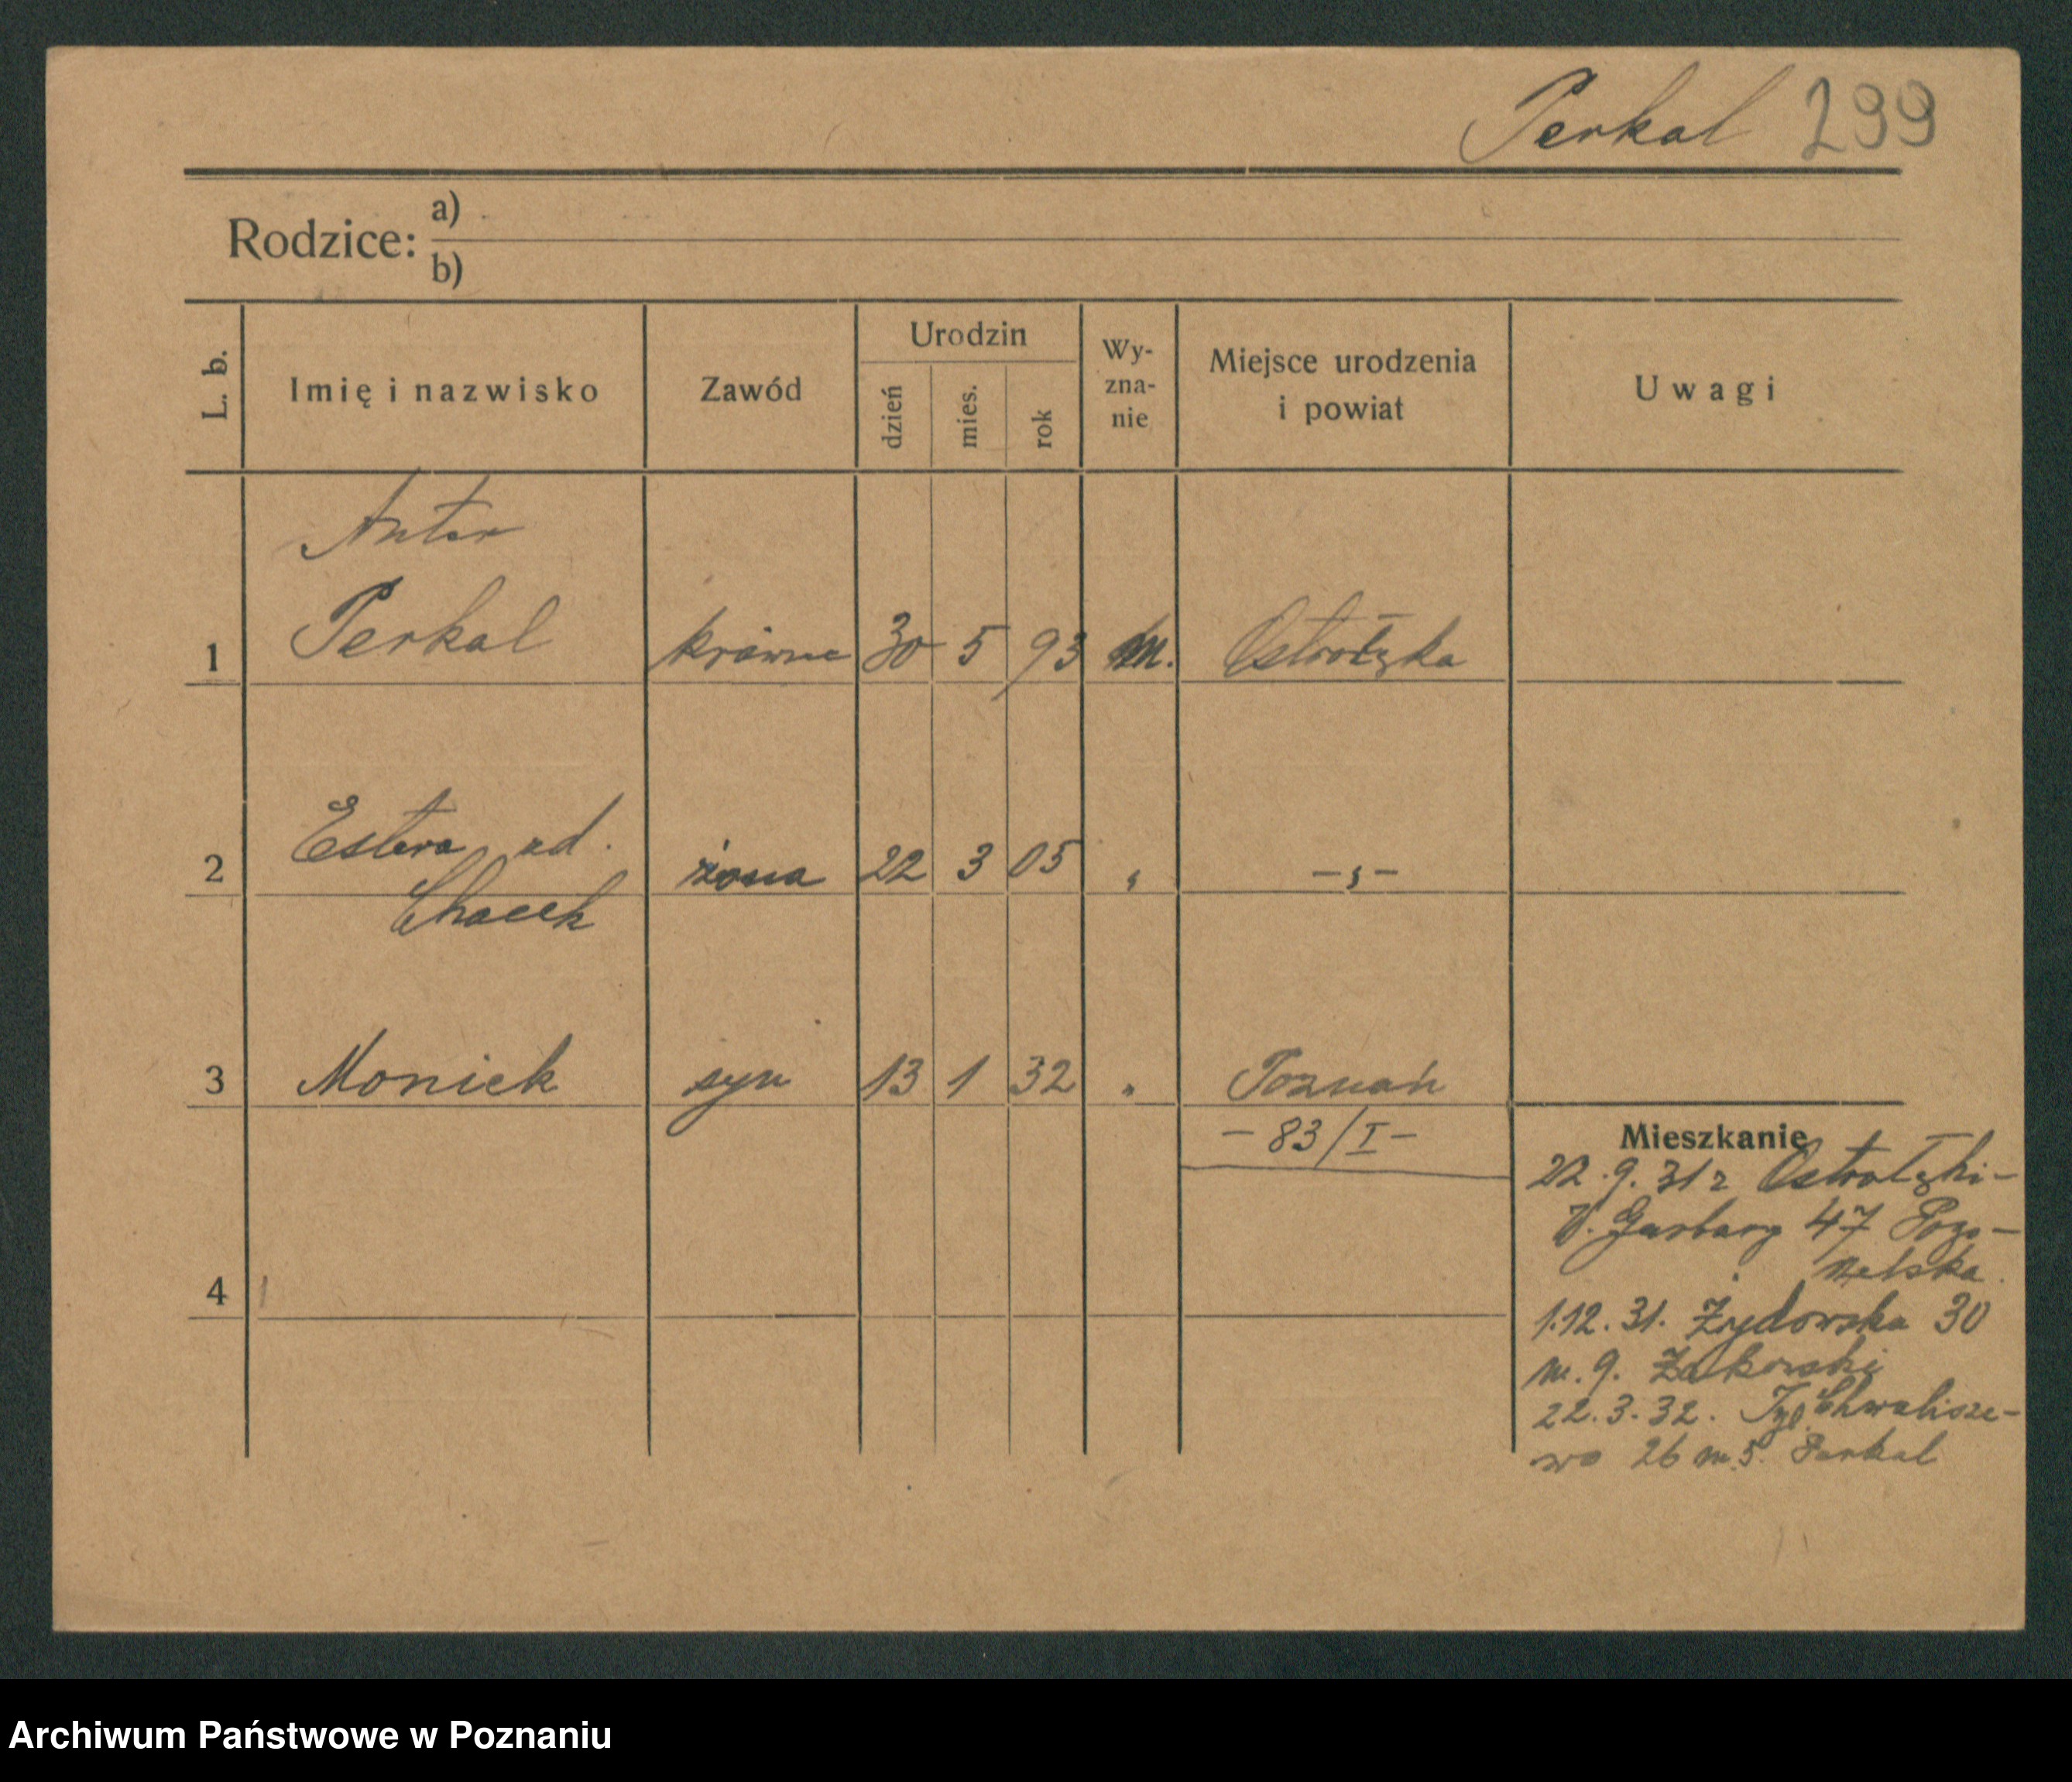 Perkal 299
Rodzice: a)
b)
L. b.
Imię i nazwisko
Zawód
Urodzin
dzień
mies.
rok
Wy-
zna-
nie
Miejsce urodzenia
i powiat
Uwagi
Anter
1 Perkal 30 5 93 m. Ostrołęka
2 Estera ud. żona 22 3 05 „ -„-
Chacek
3 Moniek syn 13 1 32 „ Poznań
- 83/I -
4
Mieszkanie
22.9.31 z Ostrołęki-
Garbary 47
1.12.31. Żydowska 30
m. 9. Żakowski
22.3.32. Chwalisze-
wo 26 m. 5. Perkal
Archiwum Państwowe w Poznaniu